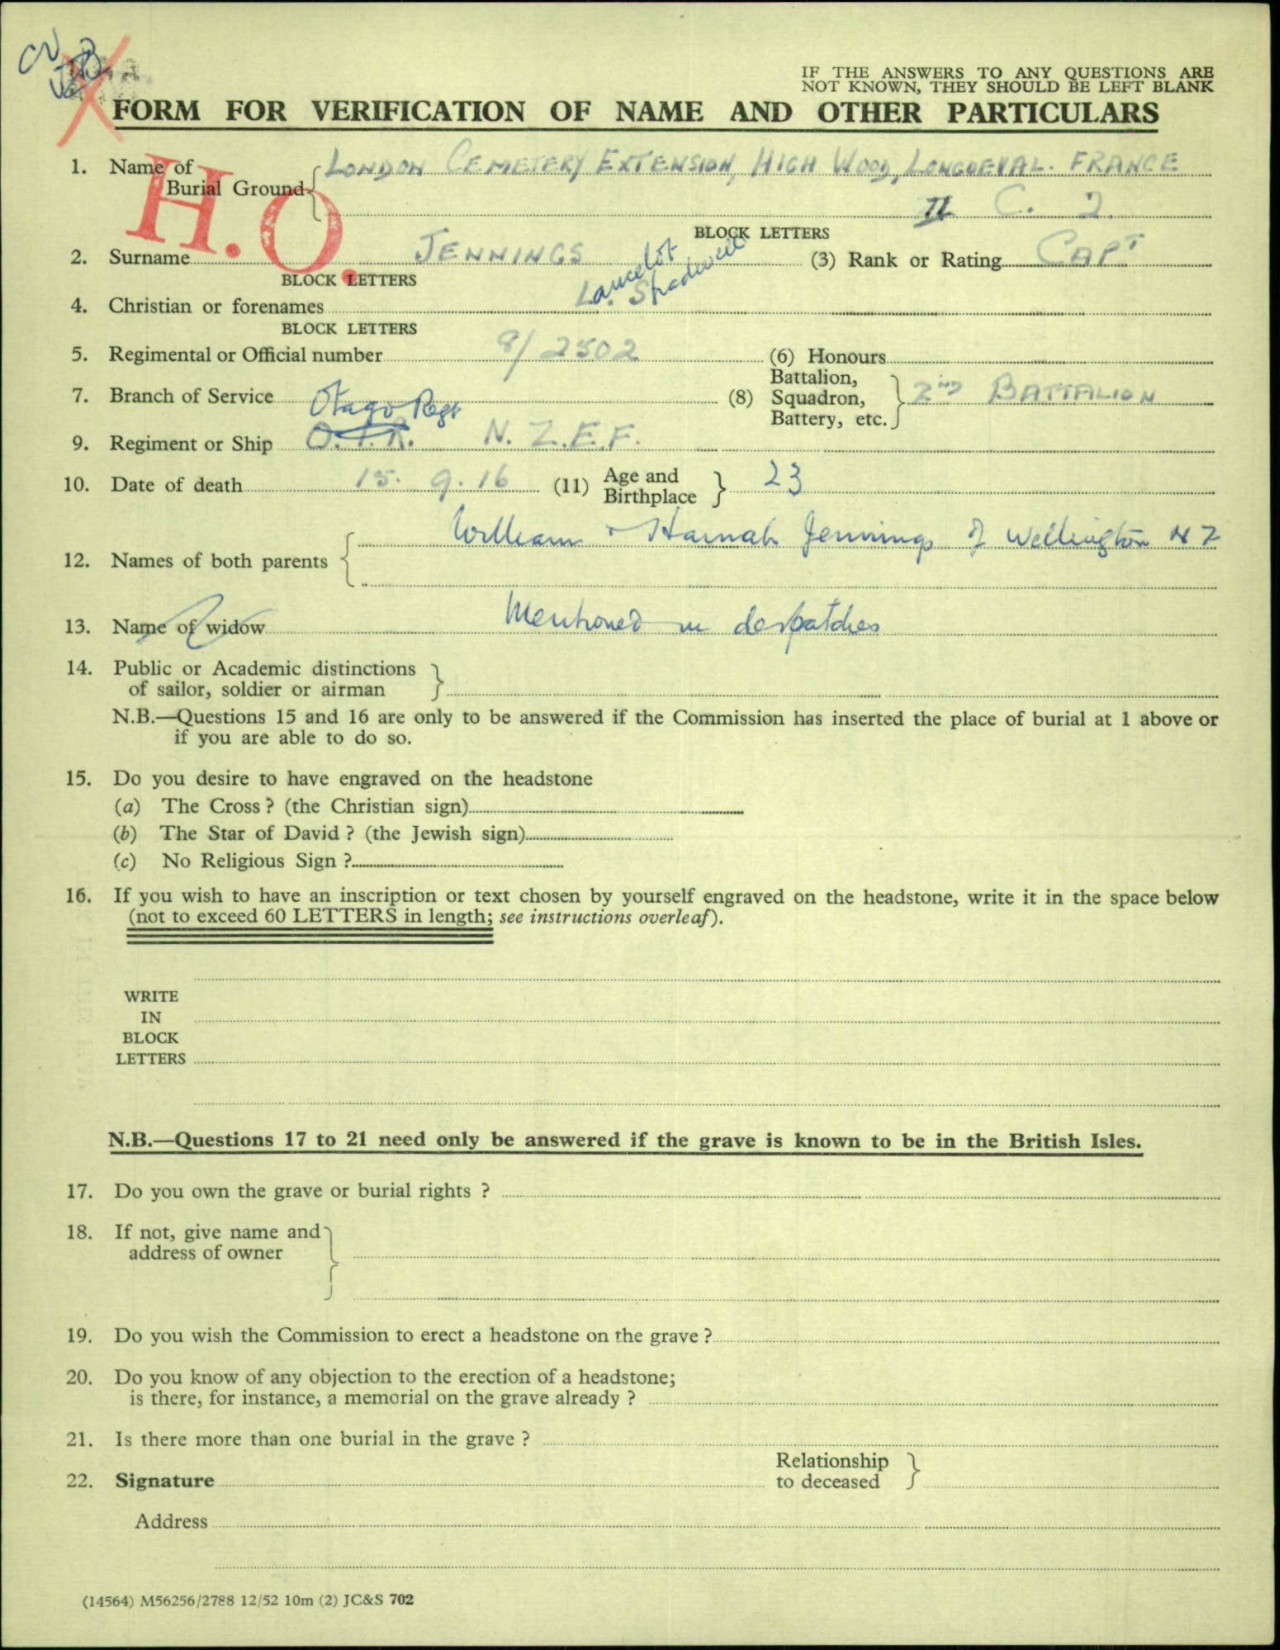 IF THE ANSWERS TO ANY QUESTIONS ARE
NOT KNOWN, THEY SHOULD BE LEFT BLANK
FORM FOR VERIFICATION OF NAME AND OTHER PARTICULARS
H.O.
1. Name of Burial Ground { LONDON CEMETERY EXTENSION, HIGH WOOD, LONGUEVAL. FRANCE
II C. 2.
BLOCK LETTERS
2. Surname JENNINGS (3) Rank or Rating CAPT
BLOCK LETTERS
Lancelot
4. Christian or forenames L. Shadwell
BLOCK LETTERS
5. Regimental or Official number 8/2502 (6) Honours
7. Branch of Service (8) Battalion, Squadron, Battery, etc. } 2ND BATTALION
Otago Regt
9. Regiment or Ship O.I.R. N.Z.E.F.
10. Date of death 15. 9. 16 (11) Age and Birthplace } 23
12. Names of both parents { William & Hannah Jennings of Wellington NZ
13. Name of widow Mentioned in despatches
14. Public or Academic distinctions
of sailor, soldier or airman }
N.B.—Questions 15 and 16 are only to be answered if the Commission has inserted the place of burial at 1 above or
if you are able to do so.
15. Do you desire to have engraved on the headstone
(a) The Cross? (the Christian sign)
(b) The Star of David? (the Jewish sign)
(c) No Religious Sign?
16. If you wish to have an inscription or text chosen by yourself engraved on the headstone, write it in the space below
(not to exceed 60 LETTERS in length; see instructions overleaf).
WRITE
IN
BLOCK
LETTERS
N.B.—Questions 17 to 21 need only be answered if the grave is known to be in the British Isles.
17. Do you own the grave or burial rights ?
18. If not, give name and
address of owner }
19. Do you wish the Commission to erect a headstone on the grave ?
20. Do you know of any objection to the erection of a headstone;
is there, for instance, a memorial on the grave already ?
21. Is there more than one burial in the grave ?
22. Signature Relationship to deceased }
Address
(14564) M56256/2788 12/52 10m (2) JC&S 702